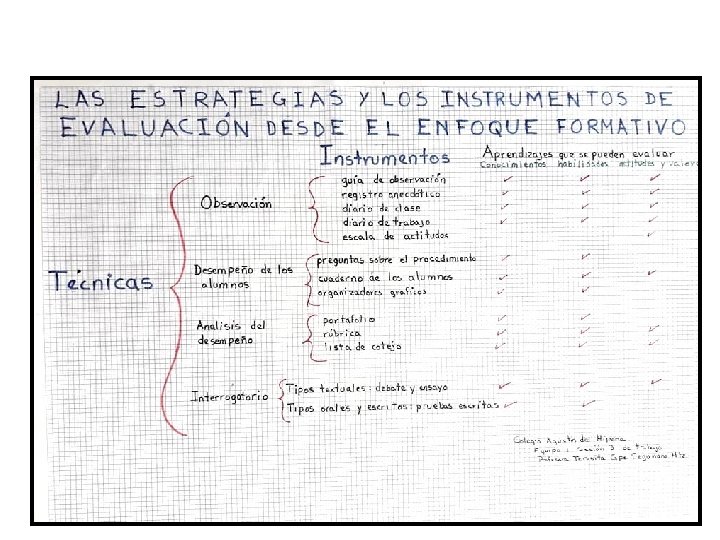 LAS ESTRATEGIAS Y LOS INSTRUMENTOS DE
EVALUACIÓN DESDE EL ENFOQUE FORMATIVO
Instrumentos
Aprendizajes que se pueden evaluar
conocimientos habilidades actitudes y valores
Técnicas
Observación
guía de observación
registro anecdótico
diario de clase
diario de trabajo
escala de actitudes
Desempeño de los
alumnos
preguntas sobre el procedimiento
cuaderno de los alumnos
organizadores gráficos
Análisis del
desempeño
portafolio
rúbrica
lista de cotejo
Interrogatorio
Tipos textuales: debate y ensayo
Tipos orales y escritos: pruebas escritas
Colegio Agustín de Hipona
Equipo 1 Sesión 3 de trabajo
Profesora Teresita